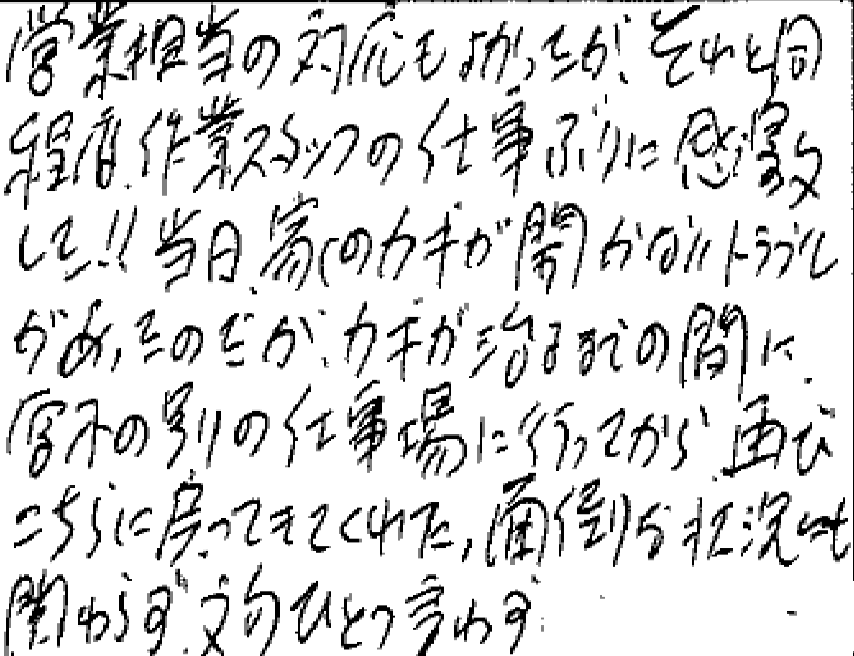 営業担当の対応もよかったが、それと同
程度、作業スタッフの仕事ぶりに感激
した!!当日、家のカギが開かないトラブル
があったのだが、カギが治るまでの間に
の別の仕事場に行ってから、再び
こちらに戻ってきてくれた,面倒な状況にも
関わらず、文句ひとつ言わず